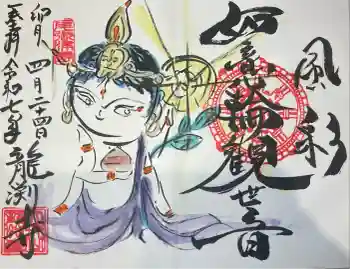 風彩
如意輪観世音
卯月 四月二十四日 龍渕寺
奉拝 令和七年